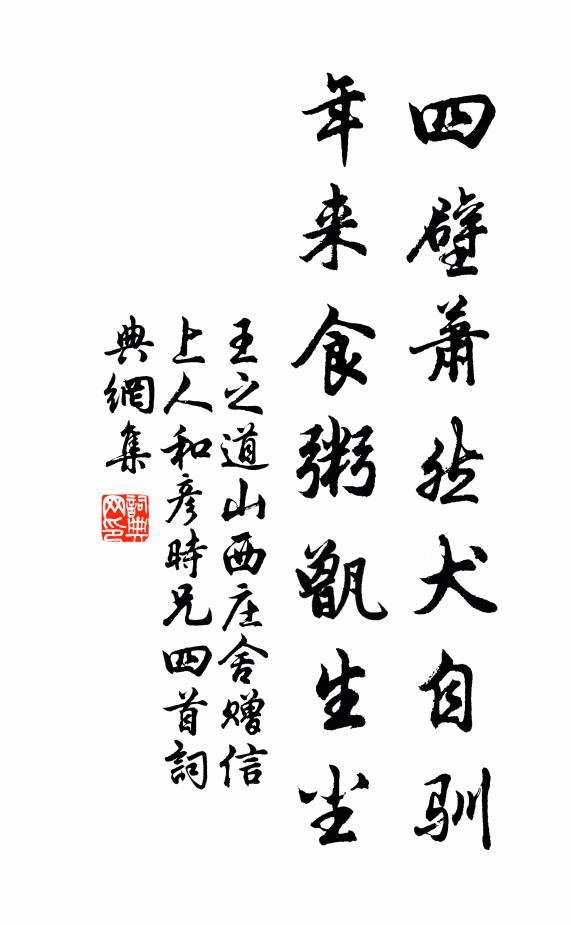 四壁蕭然犬自驯
年来食粥甑生尘
王之道山西庄舍赠信
上人和彦時兄四首詞
典網集
詞典网印